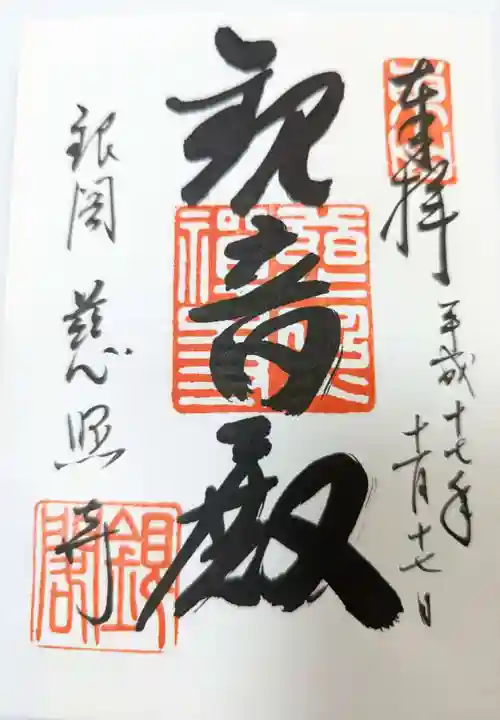 東山
奉拝
平成十七年
十一月十七日
観音殿
銀閣 慈照寺
銀閣